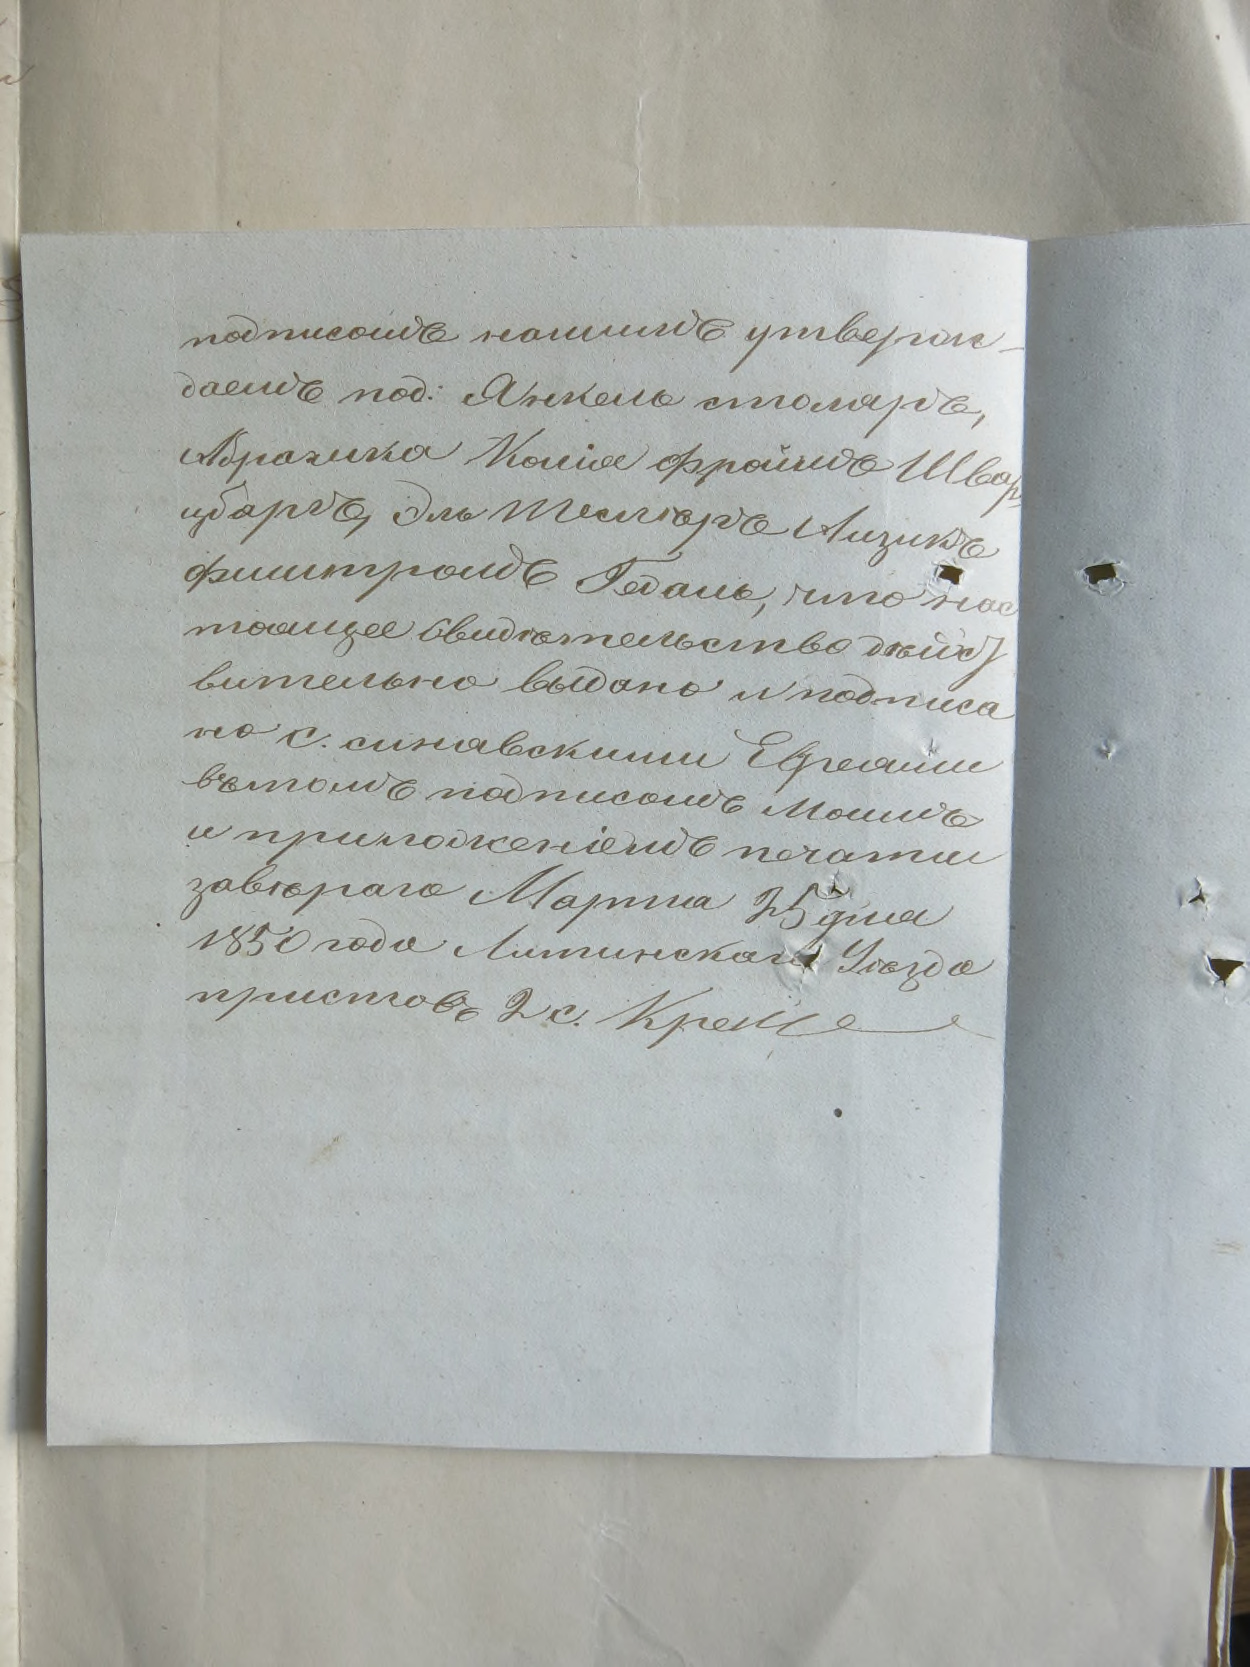 подписомъ нашимъ утверж-
даемъ под: Янкель столяръ,
Абрамка Копія Фроимъ Швар
цбаргъ, Эль Теслеръ Аизикъ
Фиштромъ Гедаль, что нас
тоящее свидѣтельство дѣйст
вительно выдано и подписа
но с. синявскими Евреями
вътомъ подписомъ моимъ
и приложеніемъ печати
завѣраю Марта 25 дня
1850 года Литинскаго Уѣзда
приставъ 2 с.